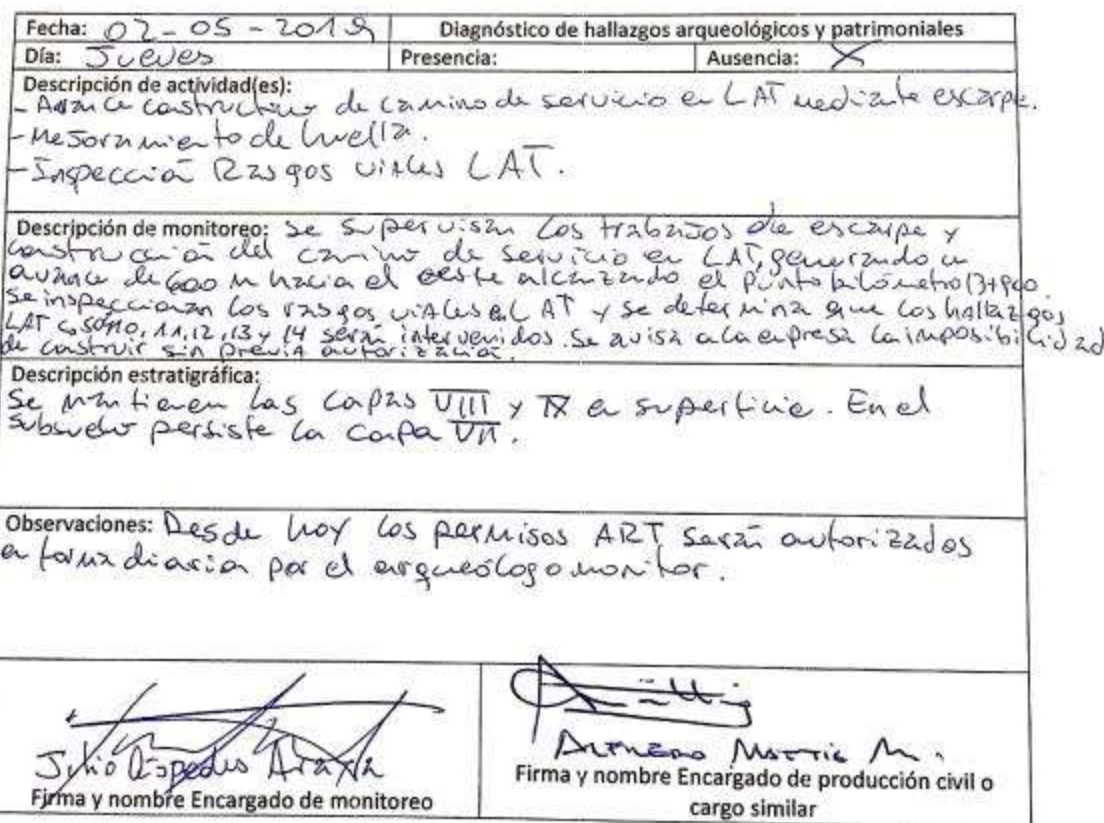 Fecha: 02-05-2019 Diagnóstico de hallazgos arqueológicos y patrimoniales
Día: Jueves Presencia: Ausencia: X
Descripción de actividad(es):
- Avance constructivo de camino de servicio en LAT mediante escarpe.
- Mejoramiento de huella.
- Inspección Rasgos viales LAT.
Descripción de monitoreo: Se supervisan los trabajos de escarpe y
construcción del camino de servicio en LAT, generando un
avance de 600 m hacia el oeste alcanzando el punto kilómetro 13+900
Se inspeccionan los rasgos viales LAT y se determina que los hallazgos
LAT 10, 11, 12, 13 y 14 serán intervenidos. Se avisa a la empresa la imposibilidad
de construir sin previa autorización.
Descripción estratigráfica:
Se mantienen las capas VIII y IX en superficie. En el
subsuelo persiste la capa VII.
Observaciones: Desde hoy los permisos ART serán autorizados
en forma diaria por el arqueólogo monitor.
Julio Araya
Firma y nombre Encargado de monitoreo
Alfredo M.
Firma y nombre Encargado de producción civil o
cargo similar